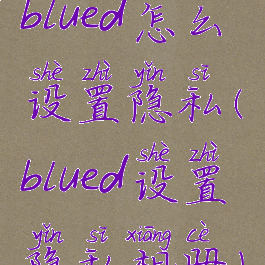 blued怎么
shè zhì yǐn sī
设置隐私(
shè zhì
blued设置
yǐn sī xiāng cè
隐私相册)